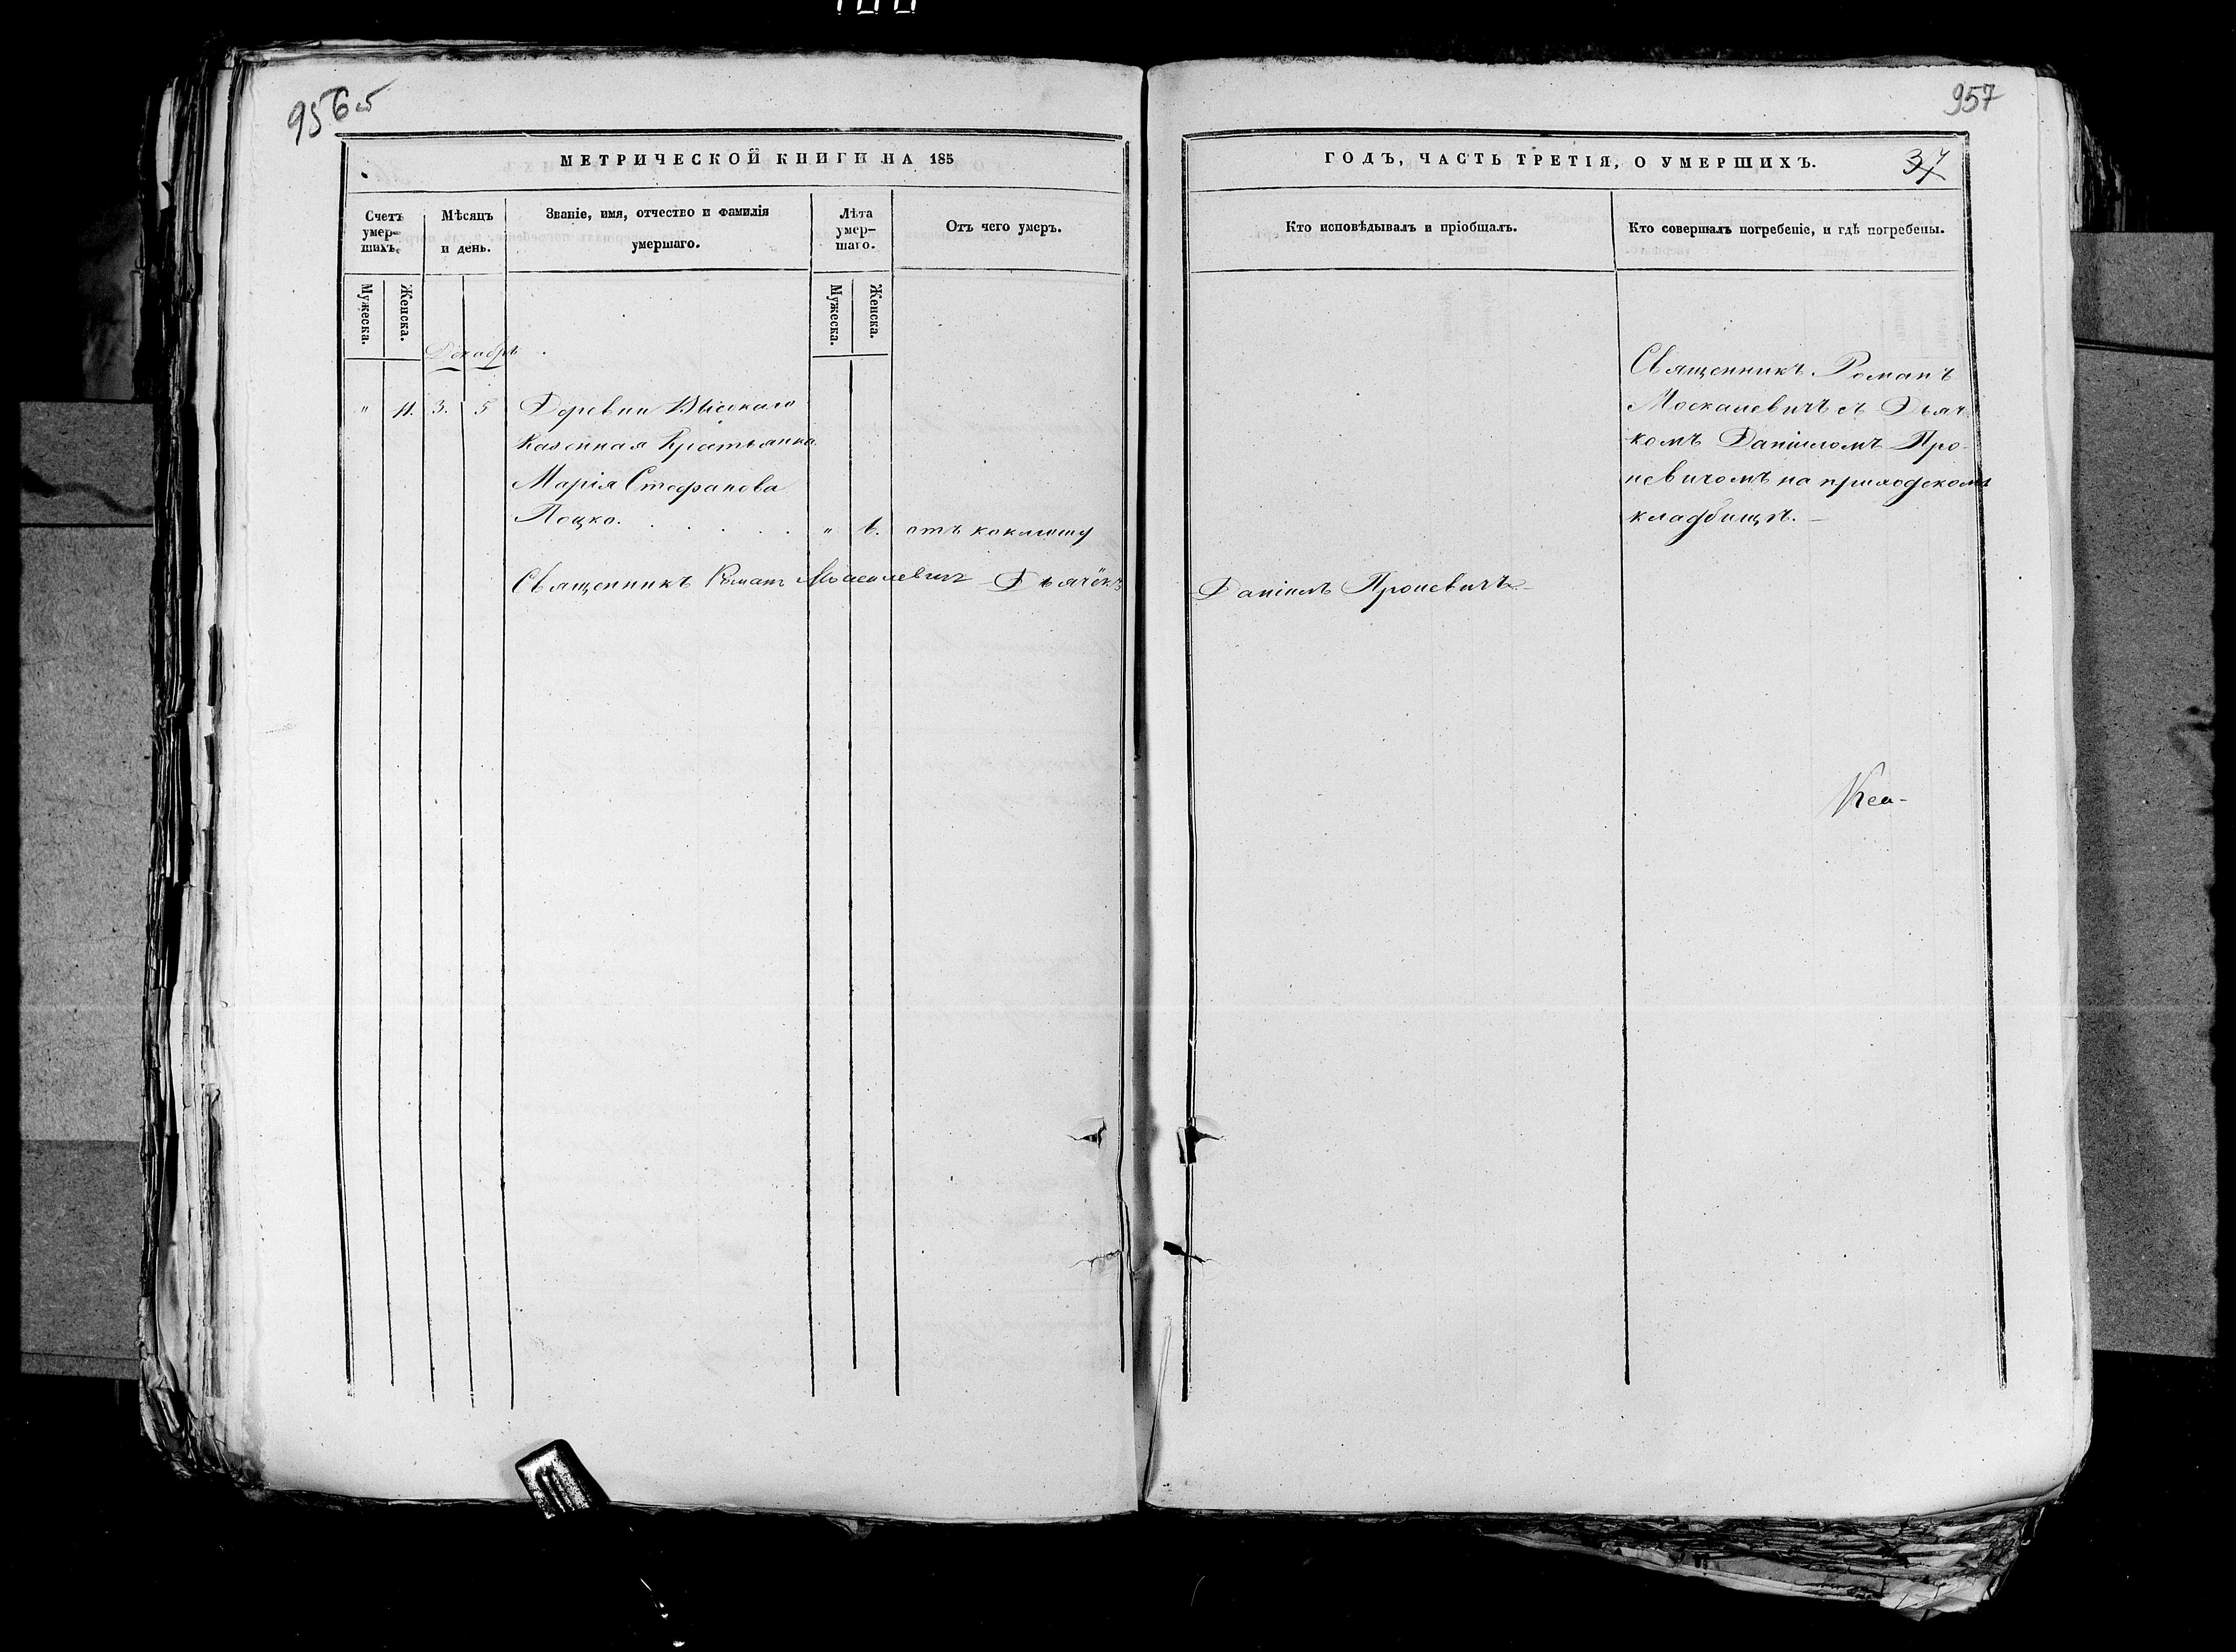 956 об
957
МЕТРИЧЕСКОЙ КНИГИ НА 185
ГОДЪ, ЧАСТЬ ТРЕТІЯ, О УМЕРШИХЪ.
37
Счетъ умер-шихъ.
Мѣсяцъ и день.
Званіе, имя, отчество и фамилія умершаго.
Лѣта умер-шаго.
Отъ чего умеръ.
Кто исповѣдывалъ и пріобщалъ.
Кто совершалъ погребеніе, и гдѣ погребены.
Мужеска.
Женска.
Мужеска.
Женска.
Декабрь
" 3. 5 Деревни Высокаго
Казенная Крестьянка
Марія Стефанова
Поцко. " отъ коклюшу
Священникъ Романъ
Москалевичъ съ Дьяч-
комъ Даніиломъ Про-
невичомъ на приходскомъ
кладбищѣ.
Священникъ Романъ Москалевичъ Дьячёкъ
Даніилъ Проневичъ